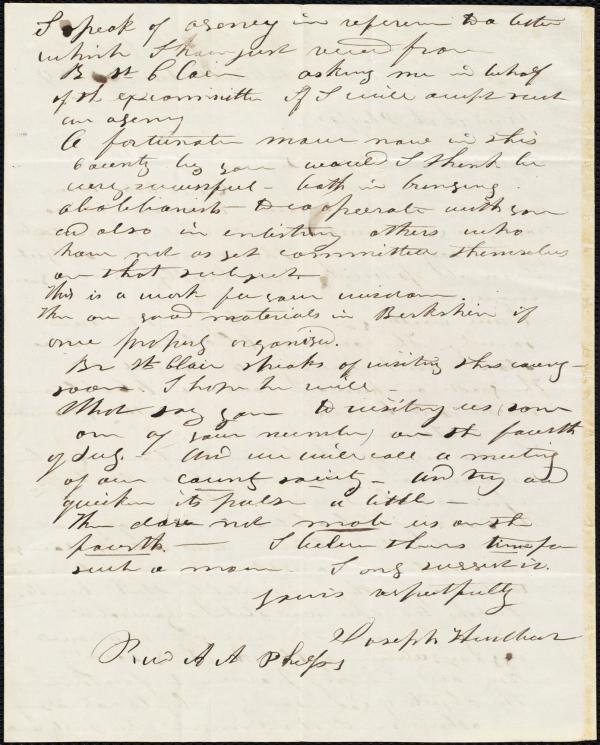 I speak of agency in reference to a letter
which I have just received from
Br St Clair asking me in behalf
of the ex committee if I will accept such
an agency
A fortunate move now in this
County by you would I think be
very successful - both in bringing
abolitionists to cooperate with you
and also in enlisting others who
have not as yet committed themselves
on that subject.
This is a work for your wisdom.
There are good materials in Berkshire if
once properly organised.
Br St Clair speaks of visiting this county
soon. I hope he will -
What say you to visiting us (some
one of your number) on the fourth
of July - And we will call a meeting
of our county society - and try and
quicken its pulse a little -
They dare not mob us on the
fourth. - I believe there is time for
such a move. I only suggest it.
Yours respectfully
Joseph Hurlbut
Rev A A Phelps